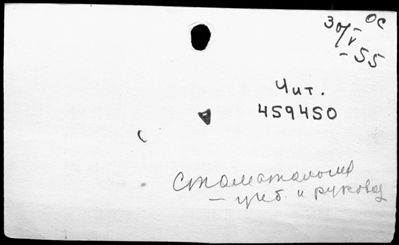 30/V ОС
- 55
Чит.
459450
Стоматология
- учеб. и руковод